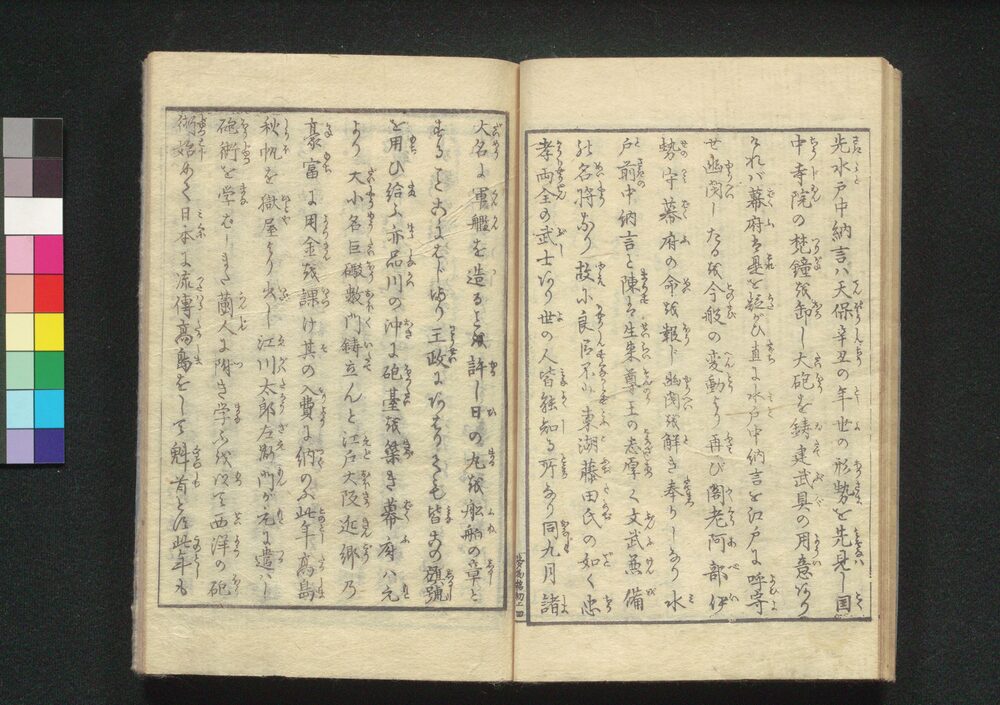 先水戸中納言ハ天保辛丑の年世の形勢を先見し国
中寺院の梵鐘を卸し大砲を鋳建武具の用意あり
されバ幕府是を疑がひ直に水戸中納言を江戸に呼寄
せ幽閉したるを今般の変動より再び閣老阿部伊
勢守幕府の命を報じ幽閉を解き奉りしなり水
戸前中納言と陳は生来尊王の志厚く文武兼備
の名将なり故に良臣不少東湖藤田氏の如く忠
孝両全の武士あり世の人皆能知る所なり同九月諸
大名に軍艦を造るを許し日の丸を船舶の章と
することこゝにはじまり王政にあひなりても皆この旗號
を用ひ給ふ亦品川の沖に砲基を築き幕府ハ元
より大小名巨礮数門鋳立んと江戸大阪近郷乃
豪富に用金を課け其の入費に納のふ此年高島
秋帆を獄屋より出し江川太郎左衛門が元に遣ハし
砲術を学ばしまた蘭人に附き学ふを以て西洋の砲
術始めて日本に流傳高島をして魁首とす此年も